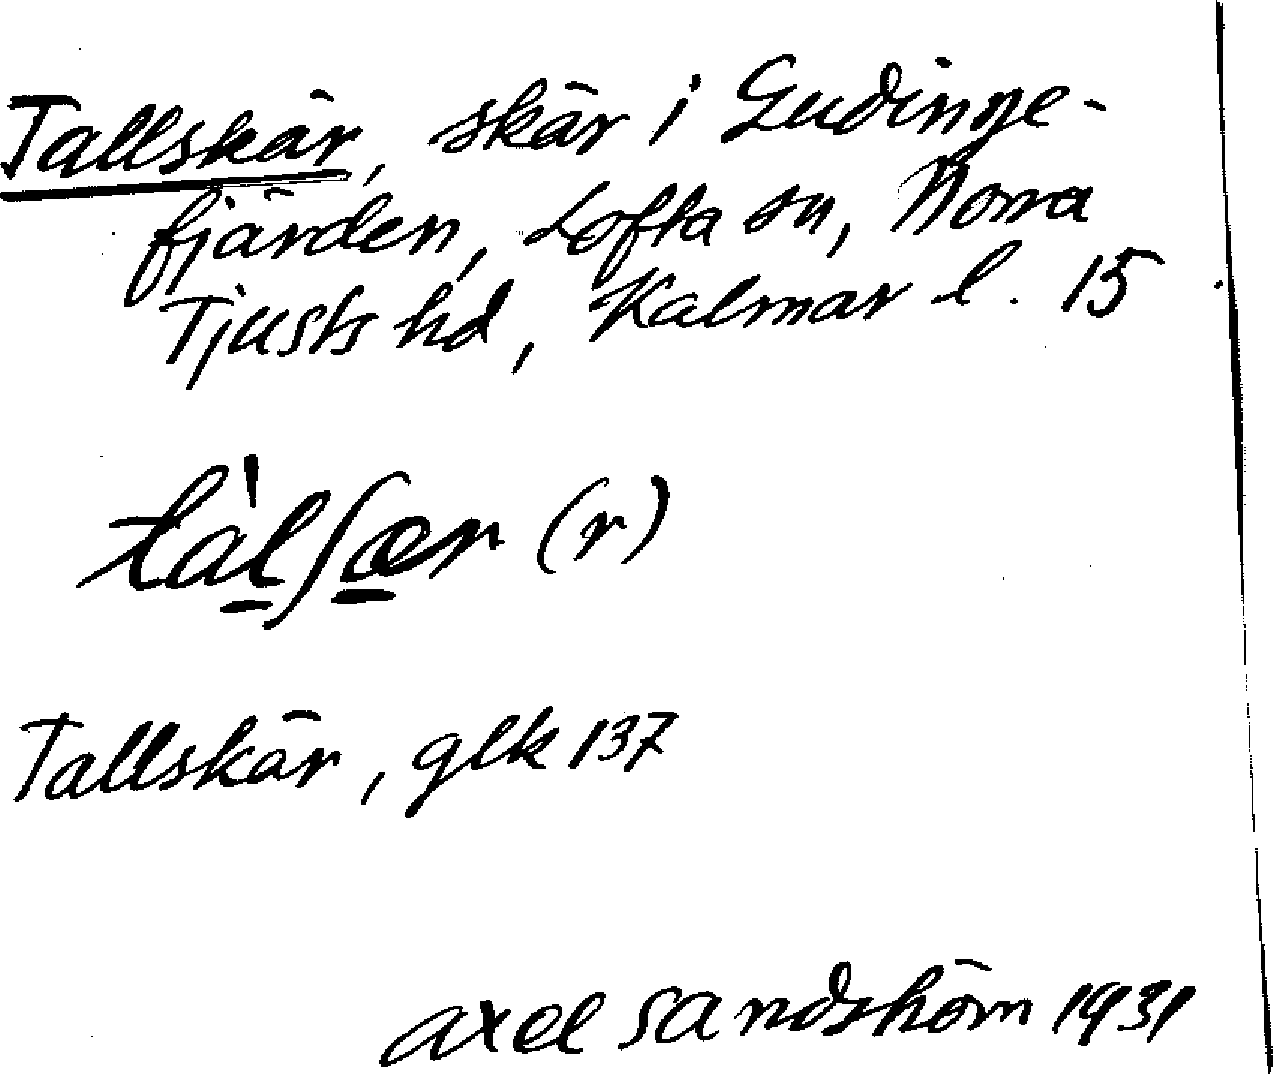 Tallskär, skär i Gudinge-
fjärden, Lofta sn, Norra
Tjusts hd, Kalmar l. 15
tàlʃær (r)
Tallskär, glk 137
axel sandström 1931